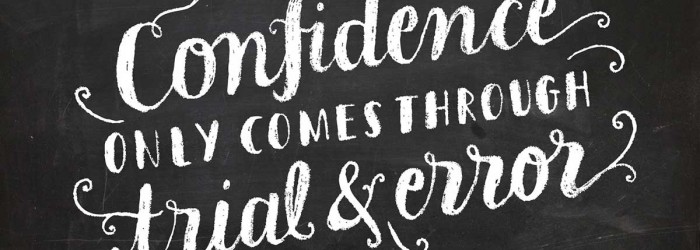 Confidence
ONLY COMES THROUGH
trial & error